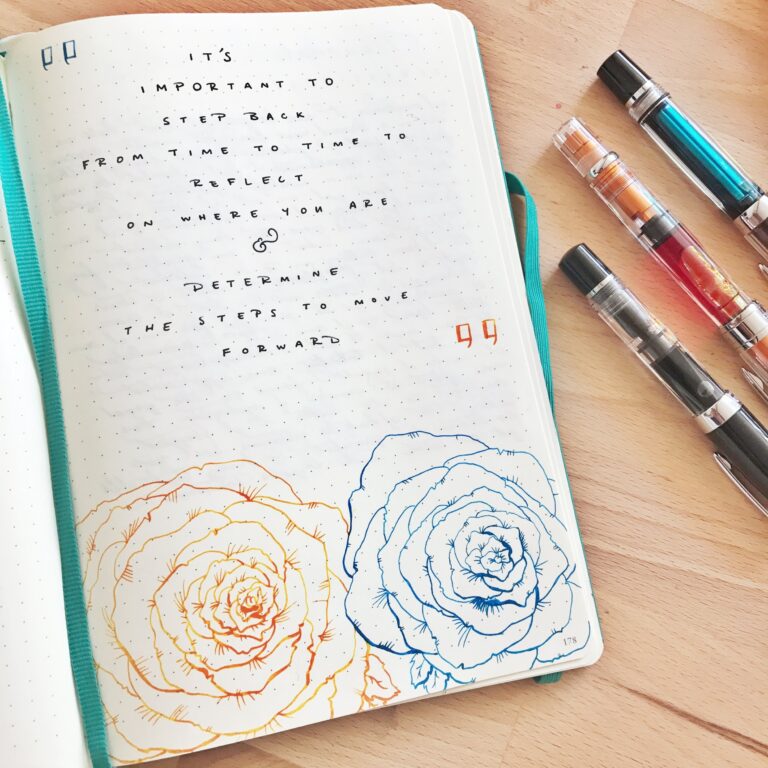 IT'S
IMPORTANT TO
STEP BACK
FROM TIME TO TIME TO
REFLECT
ON WHERE YOU ARE
&
DETERMINE
THE STEPS TO MOVE
FORWARD
178